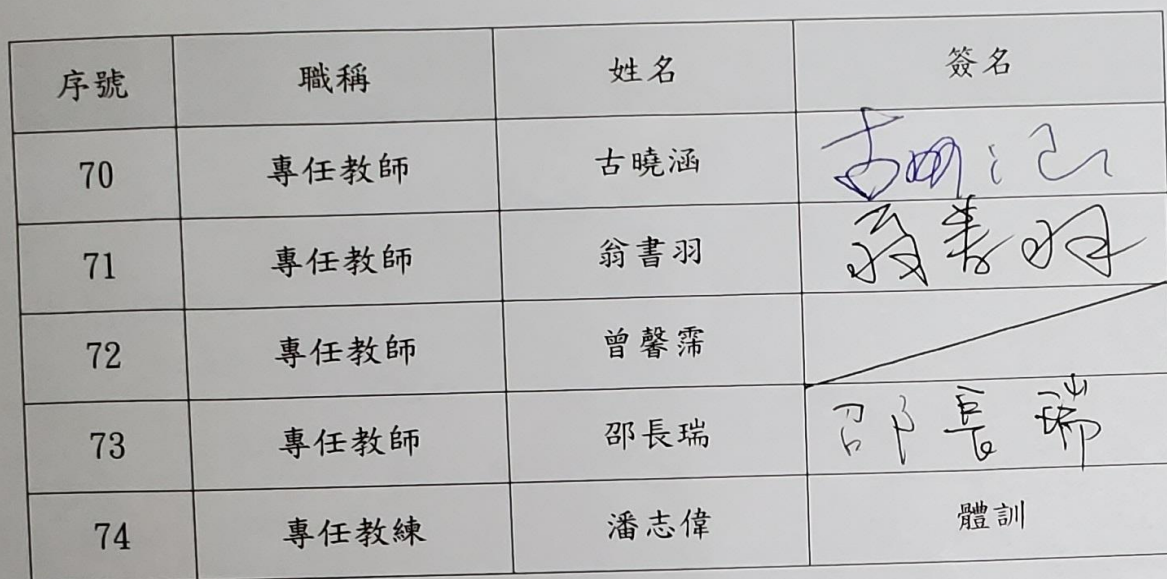 序號 職稱 姓名 簽名
70 專任教師 古曉涵 古曉涵
71 專任教師 翁書羽 翁書羽
72 專任教師 曾馨霈
73 專任教師 邵長瑞 邵長瑞
74 專任教練 潘志偉 體訓